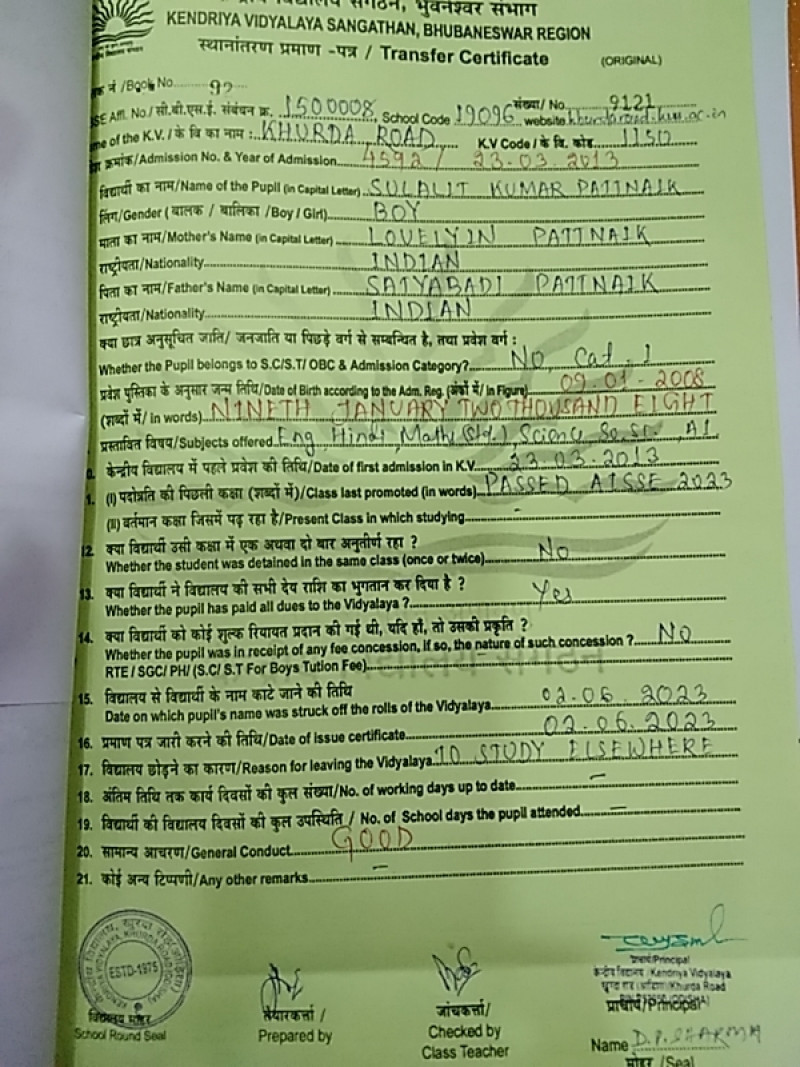 केन्द्रीय विद्यालय संगठन, भुवनेश्वर संभाग
KENDRIYA VIDYALAYA SANGATHAN, BHUBANESWAR REGION
स्थानांतरण प्रमाण -पत्र / Transfer Certificate (ORIGINAL)
/Book No. 92
संख्या/ No. 9121
Affl. No./ सी.बी.एस.ई. संबंधन क्र. 1500008, School Code 19096 website
of the K.V. / के वि का नाम : KHURDA ROAD K.V Code / के वि. कोड 11512
क्रमांक/Admission No. & Year of Admission 4592 / 23-03-2013
विद्यार्थी का नाम/Name of the Pupil (in Capital Letter) SULALIT KUMAR PATTNAIK
लिंग/Gender ( बालक / बालिका /Boy / Girl) BOY
माता का नाम/Mother's Name (in Capital Letter) LOVELYIN PATTNAIK
राष्ट्रीयता/Nationality INDIAN
पिता का नाम/Father's Name (in Capital Letter) SATYABADI PATTNAIK
राष्ट्रीयता/Nationality INDIAN
क्या छात्र अनुसूचित जाति/ जनजाति या पिछड़े वर्ग से सम्बन्धित है, तथा प्रवेश वर्ग :
Whether the Pupil belongs to S.C/S.T/ OBC & Admission Category? No, Cat-1
प्रवेश पुस्तिका के अनुसार जन्म तिथि/Date of Birth according to the Adm. Reg. (अंकों में/ in Figure) 09-01-2008
(शब्दों में/ in words) NINETH JANUARY TWO THOUSAND EIGHT
प्रस्तावित विषय/Subjects offered Eng, Hindi, Maths(Std.), Science, So.Sc., AI
केन्द्रीय विद्यालय में पहले प्रवेश की तिथि/Date of first admission in K.V. 23.03.2013
(I) पदोन्नति की पिछली कक्षा (शब्दों में)/Class last promoted (in words) PASSED AISSE 2023
(II) वर्तमान कक्षा जिसमें पढ़ रहा है/Present Class in which studying -
12. क्या विद्यार्थी उसी कक्षा में एक अथवा दो बार अनुतीर्ण रहा ?
Whether the student was detained in the same class (once or twice) No
13. क्या विद्यार्थी ने विद्यालय की सभी देय राशि का भुगतान कर दिया है ?
Whether the pupil has paid all dues to the Vidyalaya ? Yes
14. क्या विद्यार्थी को कोई शुल्क रियायत प्रदान की गई थी, यदि हाँ, तो उसकी प्रकृति ?
Whether the pupil was in receipt of any fee concession, if so, the nature of such concession ? No
RTE / SGC/ PH/ (S.C/ S.T For Boys Tution Fee)
15. विद्यालय से विद्यार्थी के नाम काटे जाने की तिथि
Date on which pupil's name was struck off the rolls of the Vidyalaya 02.06.2023
16. प्रमाण पत्र जारी करने की तिथि/Date of issue certificate 02.06.2023
17. विद्यालय छोड़ने का कारण/Reason for leaving the Vidyalaya TO STUDY ELSEWHERE
18. अंतिम तिथि तक कार्य दिवसों की कुल संख्या/No. of working days up to date -
19. विद्यार्थी की विद्यालय दिवसों की कुल उपस्थिति / No. of School days the pupil attended -
20. सामान्य आचरण/General Conduct GOOD
21. कोई अन्य टिप्पणी/Any other remarks -
ESTD-1975
विद्यालय मोहर
School Round Seal
तैयारकर्त्ता /
Prepared by
जांचकर्त्ता/
Checked by
Class Teacher
प्राचार्य/Principal
Kendriya Vidyalaya
Khurda Road
प्राचार्य/Principal
Name D.P. SHARMA
मोहर /Seal